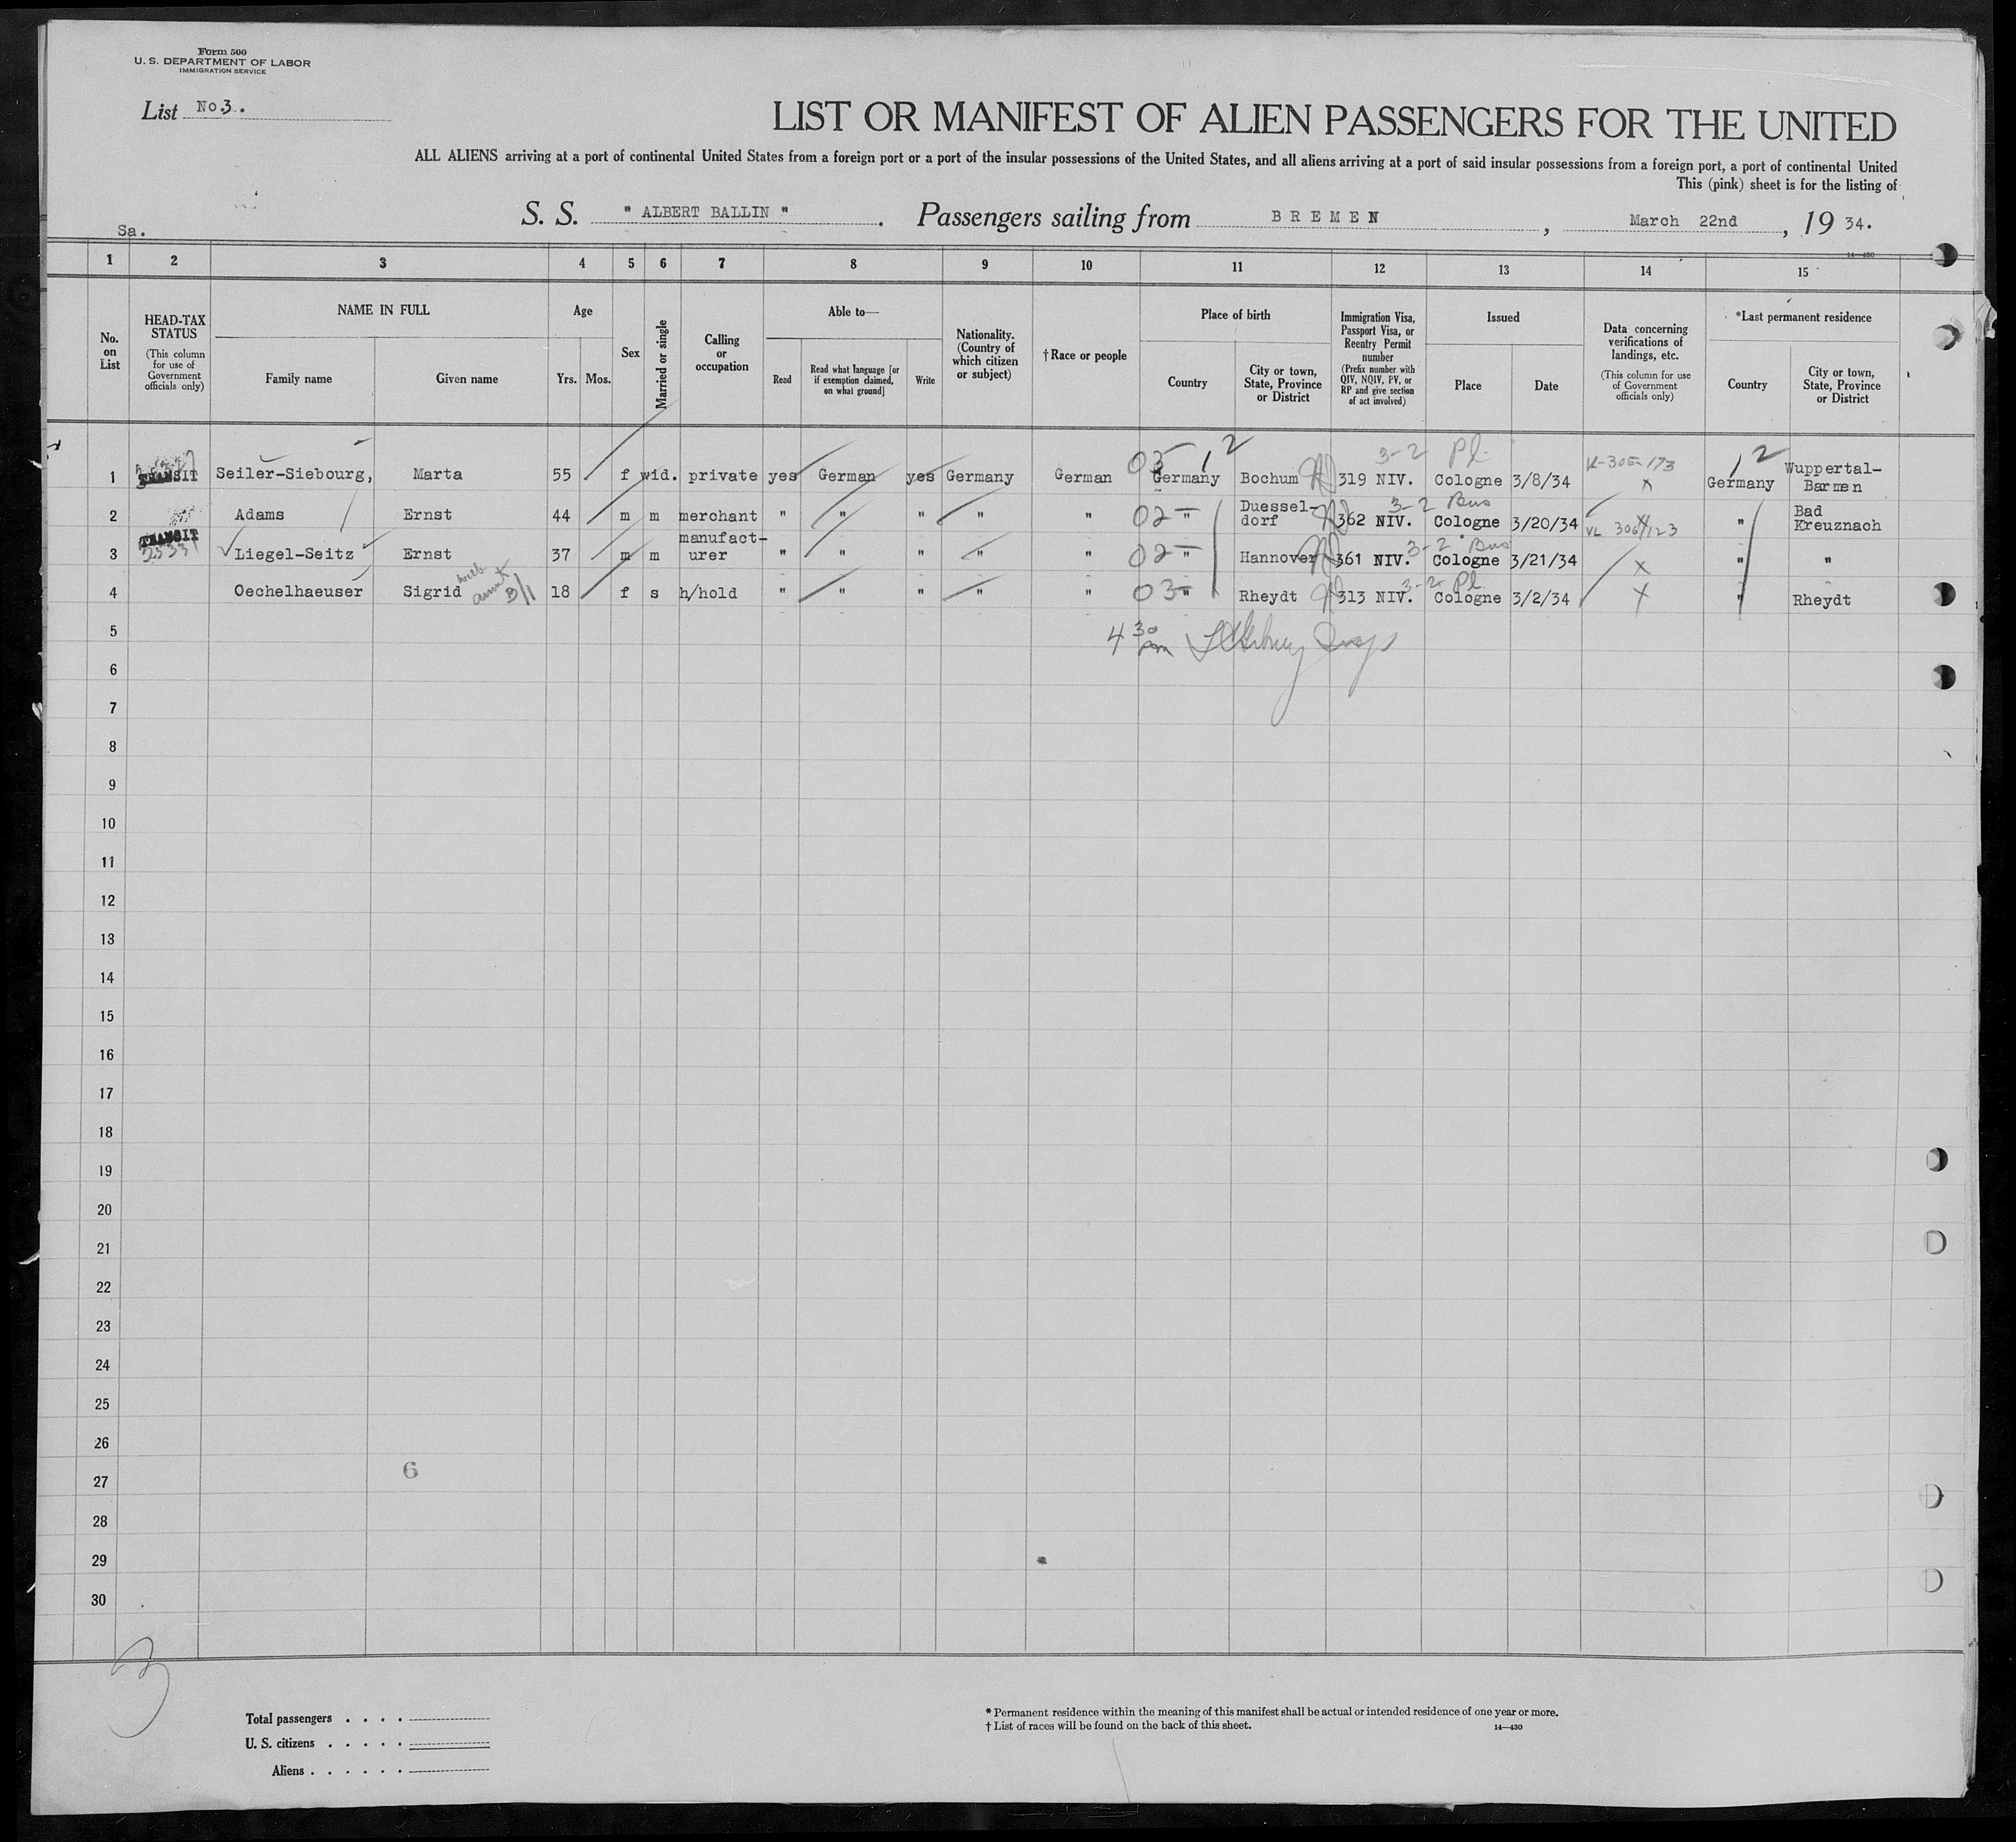 Form 500
U. S. DEPARTMENT OF LABOR
IMMIGRATION SERVICE
List No.3.
LIST OR MANIFEST OF ALIEN PASSENGERS FOR THE UNITED
ALL ALIENS arriving at a port of continental United States from a foreign port or a port of the insular possessions of the United States, and all aliens arriving at a port of said insular possessions from a foreign port, a port of continental United
This (pink) sheet is for the listing of
Sa.
S. S. " ALBERT BALLIN " . Passengers sailing from BREMEN , March 22nd , 19 34.
14—430
1 2 3 4 5 6 7 8 9 10 11 12 13 14 15
No. on List
HEAD-TAX STATUS
(This column for use of Government officials only)
NAME IN FULL
Family name
Given name
Age
Yrs. Mos.
Sex
Married or single
Calling or occupation
Able to—
Read
Read what language [or if exemption claimed, on what ground]
Write
Nationality. (Country of which citizen or subject)
† Race or people
Place of birth
Country
City or town, State, Province or District
Immigration Visa, Passport Visa, or Reentry Permit number
(Prefix number with QIV, NQIV, PV, or RP and give section of act involved)
Issued
Place
Date
Data concerning verifications of landings, etc.
(This column for use of Government officials only)
*Last permanent residence
Country
City or town, State, Province or District
03 12 3-2 Pl. 12
1 TRANSIT Seiler-Siebourg, Marta 55 f wid. private yes German yes Germany German Germany Bochum 319 NIV. Cologne 3/8/34 x Germany Wuppertal-Barmen
3-2 Bus
2 Adams Ernst 44 m m merchant " " " " " 02 — " Duesseldorf 362 NIV. Cologne 3/20/34 x " Bad Kreuznach
TRANSIT
3-2 Bus
3 Liegel-Seitz Ernst 37 m m manufacturer " " " " " 02 — " Hannover 361 NIV. Cologne 3/21/34 x " "
3-2 Pl.
4 Oechelhaeuser Sigrid 18 f s h/hold " " " " " 03 — " Rheydt 313 NIV. Cologne 3/2/34 x " Rheydt
5 4 30 pm
6
7
8
9
10
11
12
13
14
15
16
17
18
19
20
21
22
23
24
25
26
6
27
28
29
30
3
Total passengers . . . .
U. S. citizens . . . . .
Aliens . . . . . .
* Permanent residence within the meaning of this manifest shall be actual or intended residence of one year or more.
† List of races will be found on the back of this sheet.
14—430